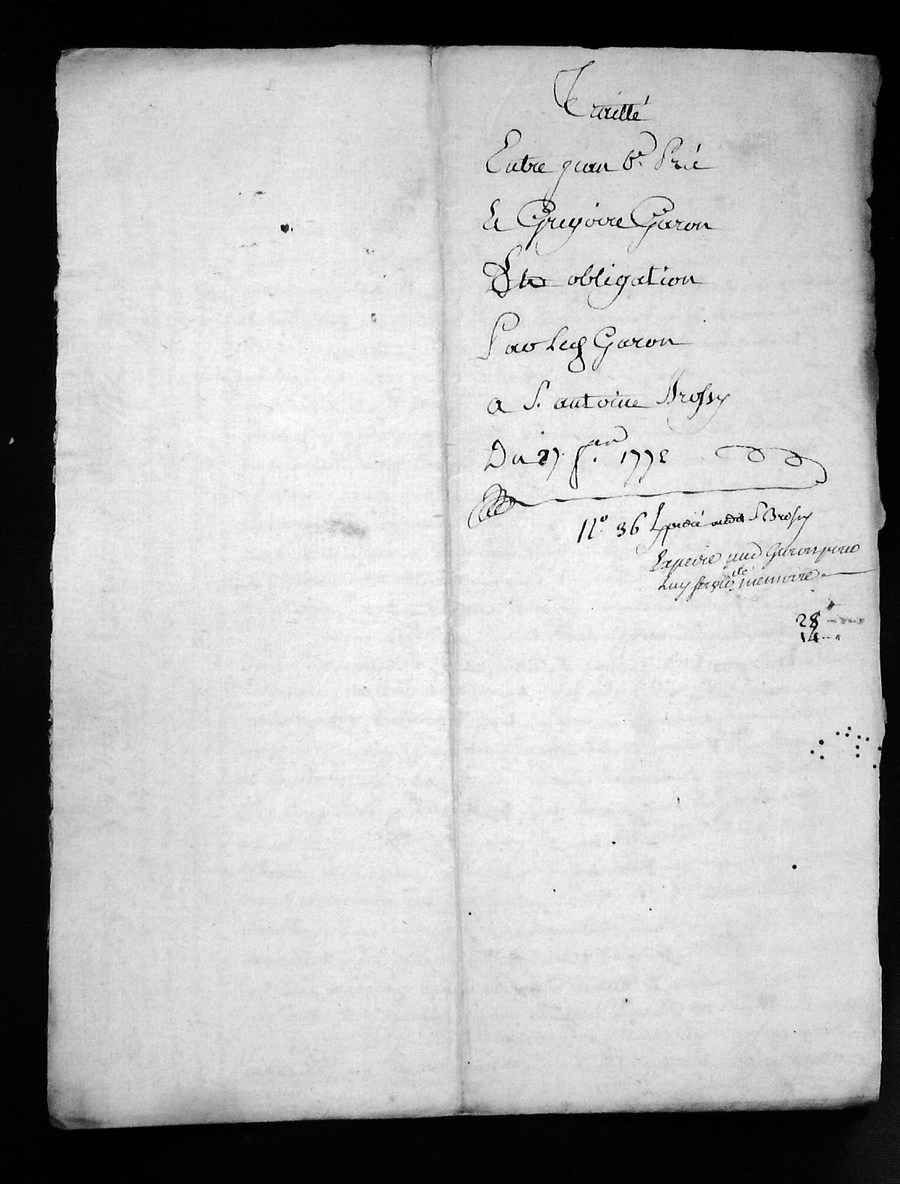 Traitté
Entre jean bte. Prié
Et Gregoire Garon
Et obligation
Par led Garon
a S. antoine Brossy
Du 27. jan. 1772
N.o 36 Expedié aud S Brossy
Expedié aud Garon pour
Luy servir de memoire
28
14